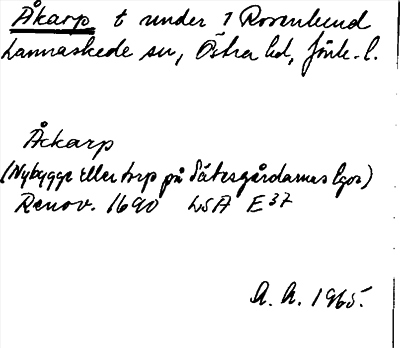 Åkarp t under 1 Rosenlund
Lannaskede sn, Östra hd, Jönk. l.
Åkarp
(Nybygge Eller torp på Sätesgårdarnas Egor)
Renov. 1690 LSA E 37
A. A. 1965.